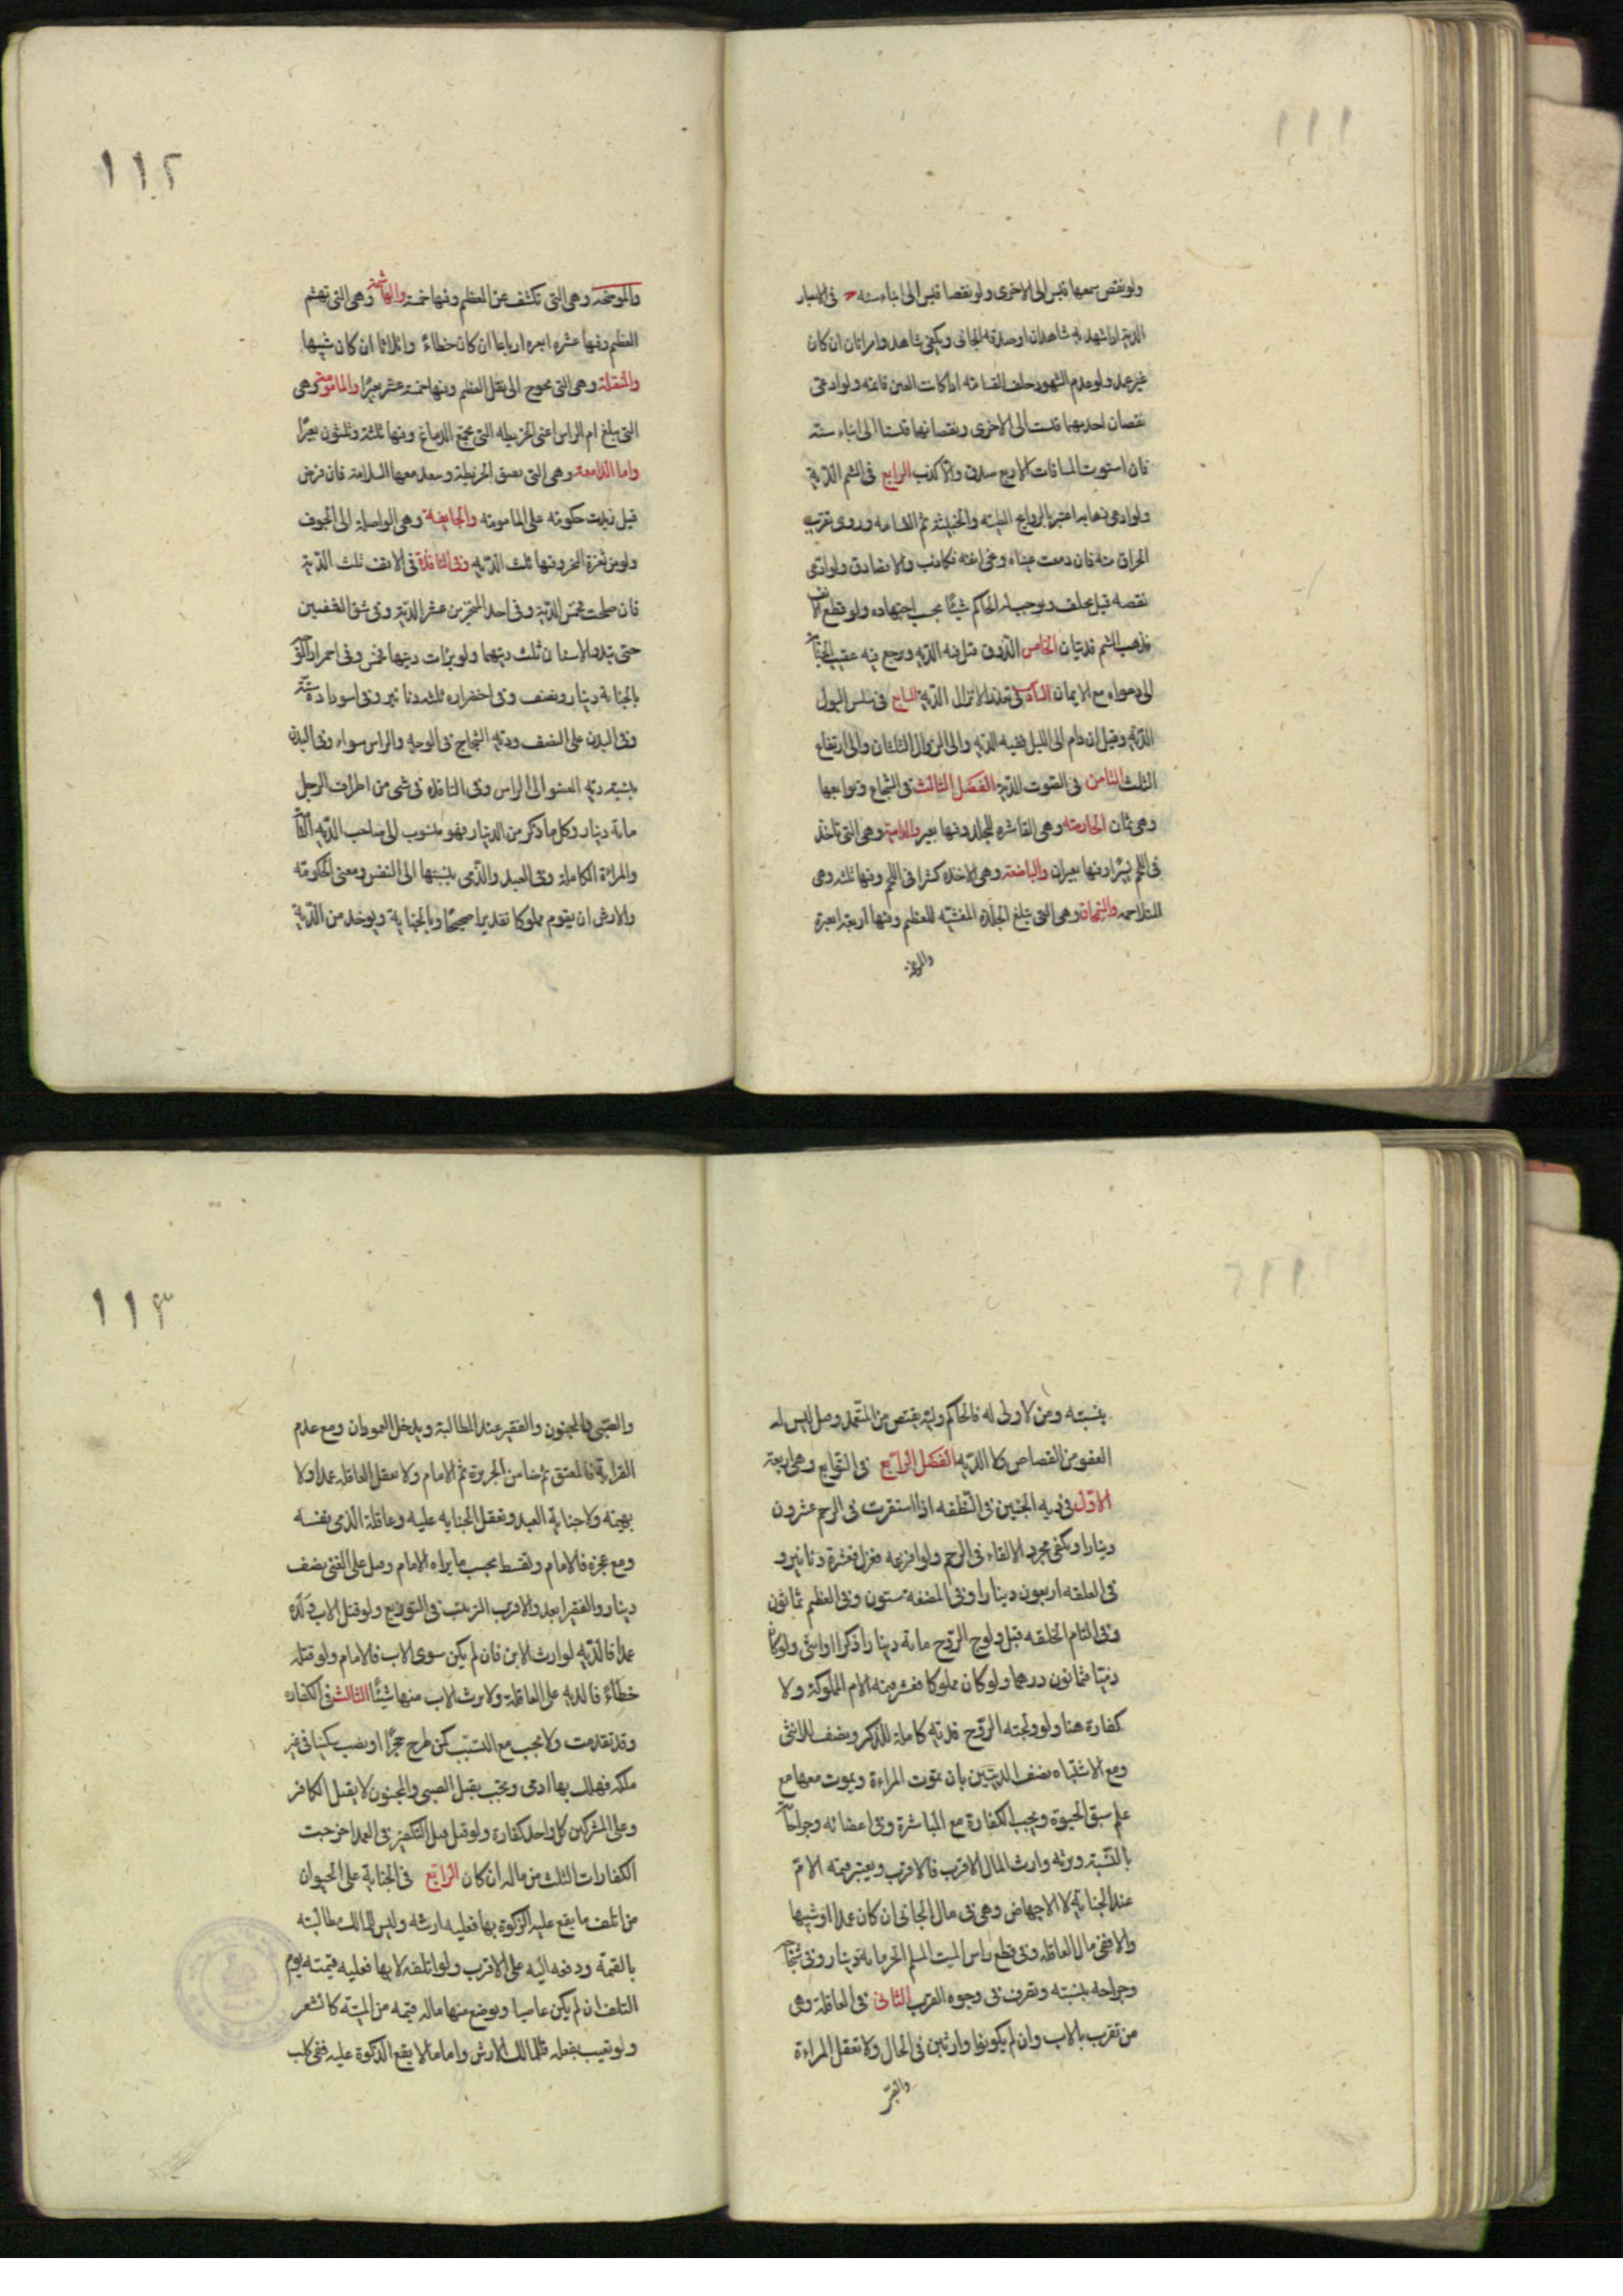 ١١١
ولو نقص سمعها قيس الى الاخرى ولو نقصا قيس الى ابناء سنه فى الابصار
الدية اذا شهد به شاهدان او صدقه الجانى ويكفى شاهد وامراتان ان كان
غير عمد ولو عدم الشهود حلف القسامه اذا كانت العين قائمه ولو ادعى
نقصان احديهما قيست الى الاخرى ونقصانهما قيستا الى ابناء سنه
فان استوت المسافات الاربع صدق والا كذب الرابع فى الشم الدية
ولو ادعى ذهابه اعتبر بالروايح الطيبه والخبيثه ثم القسامه وروى تقريب
الحراق منه فان دمعت عيناه ونحى انفه فكاذب والا فصادق ولو ادعى
نقصه قيل يحلف ويوجب له الحاكم شيئا بحسب اجتهاده ولو قطع الانف
فذهب الشم فديتان الخامس الذوق قيل فيه الدية ويرجع فيه عقيب الجناية
الى دعواه مع الايمان السادس فى تعذر الانزال الدية السابع فى سلس البول
الدية وقيل ان دام الى الليل ففيه الدية والى الزوال الثلثان والى ارتفاع
الثلث الثامن فى الصوت الدية الفصل الثالث فى الشجاج وتوابعها
وهى ثمان الحارصه وهى القاشرة للجلد وفيها بعير والدامية وهى التى تاخذ
فى اللحم يسيرا وفيها بعيران والباضعة وهى الاخذه كثيرا فى اللحم وفيها ثلثه وهى
المتلاحمه والسمحاق وهى التى تبلغ الجلدة المغشيه للعظم وفيها اربعة ابعرة
والموضحه
١١٢
والموضحه وهى التى تكشف عن العظم وفيها خمسة والهاشمة وهى التى تهشم
العظم وفيها عشرة ابعره ارباعا ان كان خطاءً واثلاثا ان كان شبيها
والمنقلة وهى التى تحوج الى نقل العظم وفيها خمسة عشر بعيرًا والمامومة وهى
التى تبلغ ام الراس اعنى الخريطه التى تجمع الدماغ وفيها ثلثة وثلثون بعيرًا
واما الدامغة وهى التى تفتق الخريطة وتبعد معها السلامة فان فرض
قيل زيدت حكومته على المامومه والجايفة وهى الواصلة الى الجوف
ولو من ثغرة النحر وفيها ثلث الدية وفى النافذة فى الانف ثلث الدية
فان صلحت فخمس الدية وفى احد المنخرين عشر الدية وفى شق الشفتين
حتى تبدو الاسنان ثلث ديتهما ولو برئت ديتهما خمس وفى احمرار الوجه
بالجناية دينار ونصف وفى اخضراره ثلثه دنانير وفى اسوداده ستة
وفى البدن على النصف ودية الشجاج فى الوجه والراس سواء وفى البدن
بنسبة دية العضو الى الراس وفى النافذة فى شى من اطراف الرجل
مائة دينار وكل ما ذكر من الدينار فهو منسوب الى صاحب الدية التامة
والمراة الكاملة وفى العبد والذمى بنسبتها الى النفس ومعنى الحكومة
والارش ان يقوم مملوكا تقديرا صحيحًا وبالجناية ويوخذ من الدية
بنسبته ومن لا ولى له فالحاكم وليه يقتص من المتعمد وقيل ليس له
العفو من القصاص ولا الدية الفصل الرابع فى التوابع وهى اربعة
الاول فى دية الجنين فى النطفه اذا استقرت فى الرحم عشرون
دينارا ويكفى مجرد الالقاء فى الرحم ولو افزعه فعزل فعشرة دنانير و
فى العلقه اربعون دينارا وفى المضغة ستون وفى العظم ثمانون
وفى التام الخلقه قبل ولوج الروح مائة دينار ذكرا او انثى ولو كان
ذميا ثمانون درهما ولو كان مملوكا فعشر قيمة الام المملوكة ولا
كفارة هنا ولو ولجته الروح فديته كاملة للذكر ونصف للانثى
ومع الاشتباه نصف الديتين بان تموت المراءة ويموت معها مع
علم سبق الحيوة ويجب الكفارة مع المباشرة وفى اعضائه وجراحاته
بالنسبة ويرثه وارث المال الاقرب فالاقرب ويعتبر قيمة الام
عند الجناية لا الاجهاض وهى فى مال الجانى ان كان عمدا او شبيها
والا ففى مال العاقله وفى قطع راس الميت المسلم الحر مائة دينار وفى شجاجه
وجراحه بنسبته وتصرف فى وجوه القرب الثانى فى العاقلة وهى
من تقرب بالاب وان لم يكونوا وارثين فى الحال ولا تعقل المراءة
والصبى
١١٣
والصبى والمجنون والفقير عند المطالبة ويدخل العمودان ومع عدم
القرابة فالمعتق ثم ضامن الجريرة ثم الامام ولا تعقل العاقلة عمدا ولا
بهيمة ولا جناية العبد وتعقل الجناية عليه وعاقلة الذمى نفسه
ومع عجزه فالامام وتقسط بحسب ما يراه الامام وقيل على الغنى نصف
دينار والفقير ربعه والاقرب الترتيب فى التوزيع ولو قتل الاب ولده
عمدا فالدية لوارث الابن فان لم يكن سوى الاب فالامام ولو قتله
خطاءً فالدية على العاقلة ولا يرث الاب منها شيئًا الثالث فى الكفارة
وقد تقدمت ولا تجب مع التسبب كمن طرح حجرًا او نصب سكينا فى غير
ملكه فهلك بها ادمى وتجب بقتل الصبى والمجنون لا بقتل الكافر
وعلى المشتركين كل واحد كفارة ولو قتل قبل التكفير فى العمد اخرجت
الكفارات الثلث من ماله ان كان الرابع فى الجناية على الحيوان
من اتلف ما يقع عليه الزكوة بها فعليه ارشه وليس للمالك مطالبته
بالقيمة ودفعه اليه على الاقرب ولو اتلفه لا بها فعليه قيمته يوم
التلف ان لم يكن غاصبا ويوضع منها ماله قيمة من الميتة كالشعر
ولو تعيب بفعله فللمالك الارش واما ما لا يقع الذكوة عليه ففى كلب